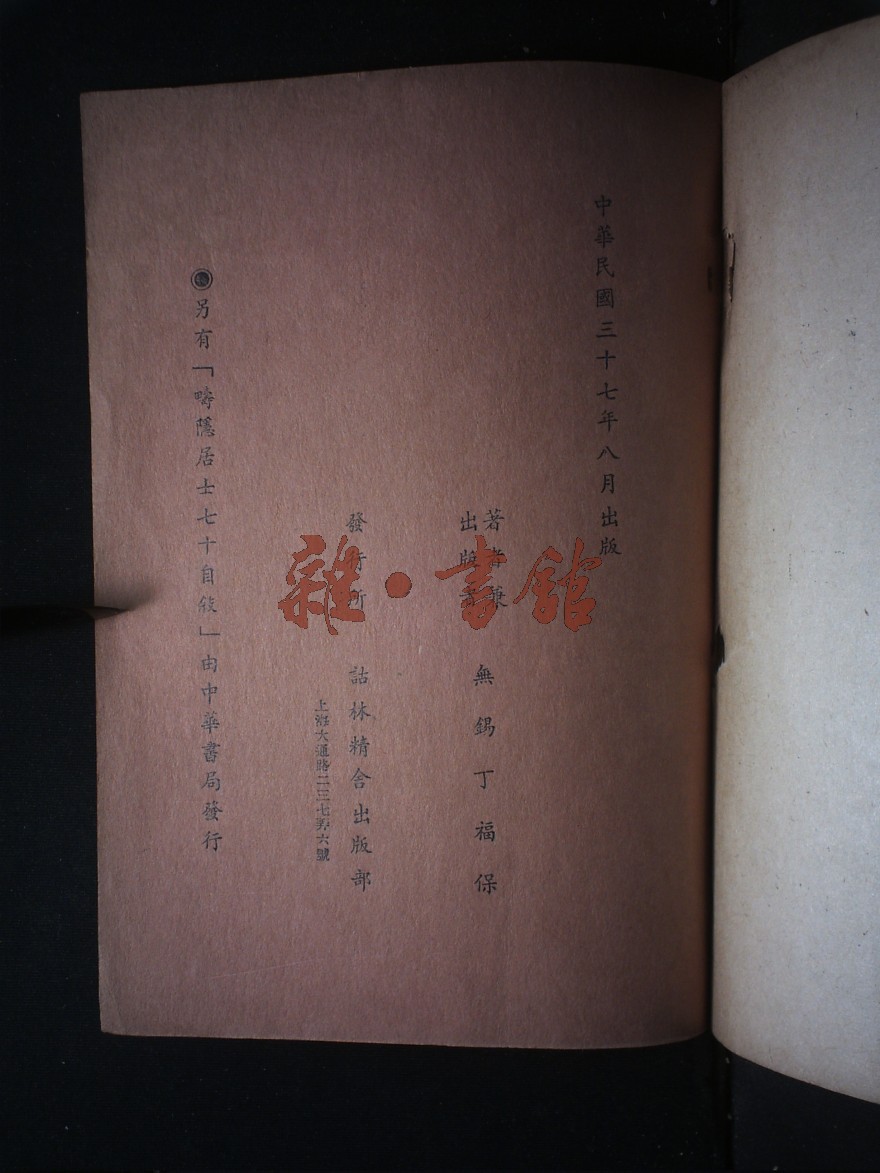 中華民國三十七年八月出版
著者兼
出版者
無錫丁福保
發行所
詁林精舍出版部
上海大通路二三七弄六號
另有「疇隱居士七十自敍」由中華書局發行
雜·書館